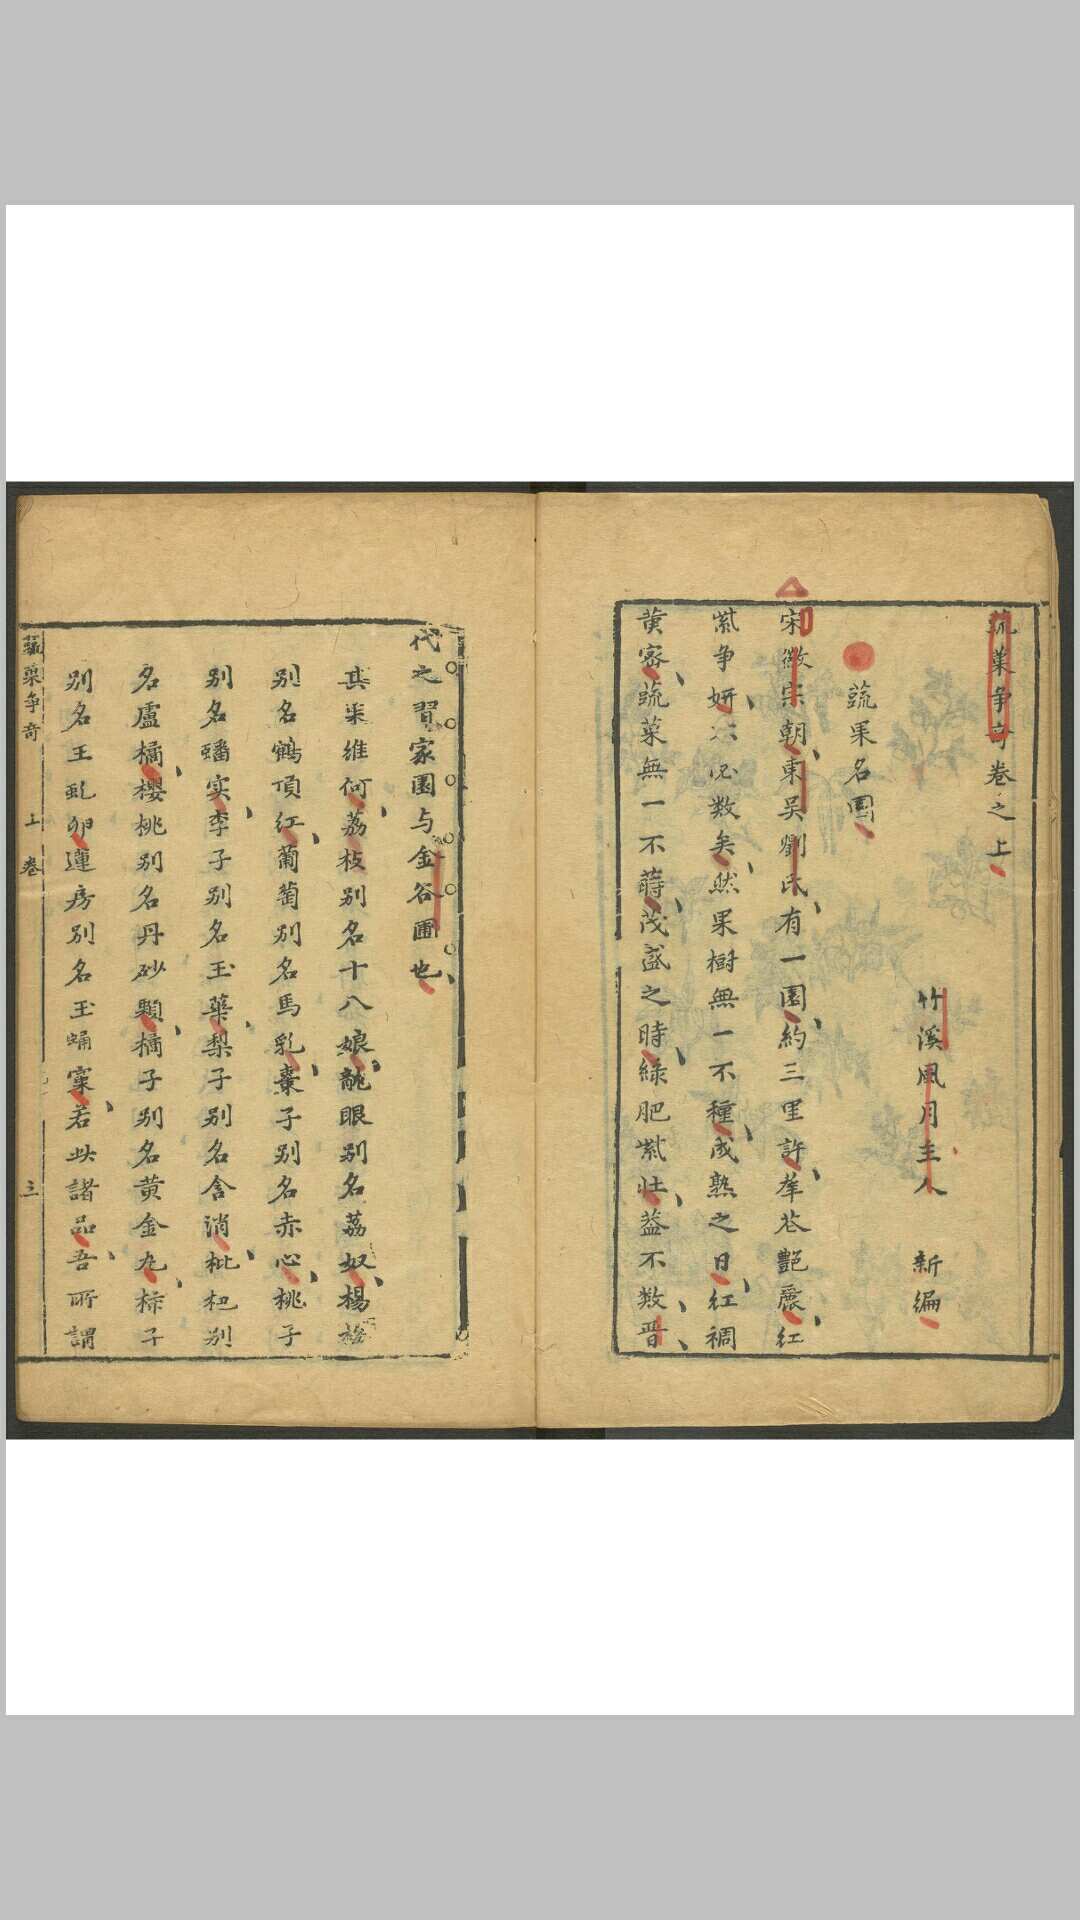 蔬菓争奇卷之上
竹溪風月主人 新編
蔬果名園
宋徽宗朝東吴劉氏有一園約三里許羣芲艷麗紅
紫争妍不必数矣然果樹無一不種成熟之日红裯
黄密蔬菜無一不蒔茂盛之時绿肥紫壯葢不数晋
代之習家園与金谷圃也
其果维何荔枝别名十八娘龍眼别名荔奴楊梅
别名鶴頂红葡萄别名馬乳棗子别名赤心桃子
别名蟠实李子别名玉蘂梨子别名含消枇杷别
名盧橘櫻桃别名丹砂顆橘子别名黄金丸柿子
别名王虬卵蓮房别名玉蛹窠若此諸品吾所謂
蔬菓争奇 上卷 三